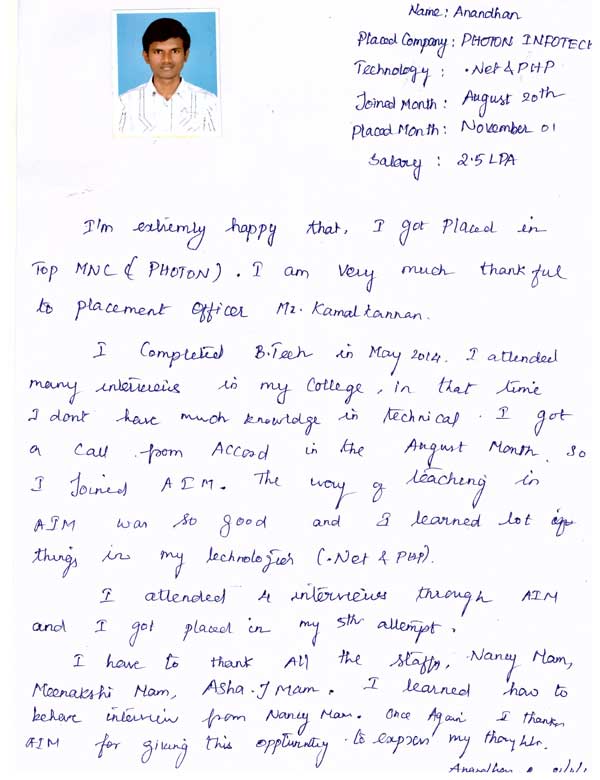 Name: Anandhan
Placed Company: PHOTON INFOTECH
Technology : .Net & PHP
Joined Month : August 20th
Placed Month: November 01
Salary : 2.5 LPA
I'm extremly happy that, I got Placed in
Top MNC ( PHOTON). I am very much thankful
to placement Officer Mr. Kamal kannan.
I Completed B.Tech in May 2014. I attended
many interviews in my College, in that time
I dont have much knowldge in technical. I got
a call from Accord in the August Month. So
I Joined AIM. The way of teaching in
AIM was so good and I learned lot of
things in my technologies (.Net & PHP).
I attended 4 interviews through AIM
and I got placed in my 5th attempt.
I have to thank All the staffs, Nancy Mam,
Meenakshi Mam, Asha.J Mam. I learned how to
behave interview from Nancy Mam. Once Again I thanks
AIM for giving this oppturnity to express my thoughts.
Anandhan